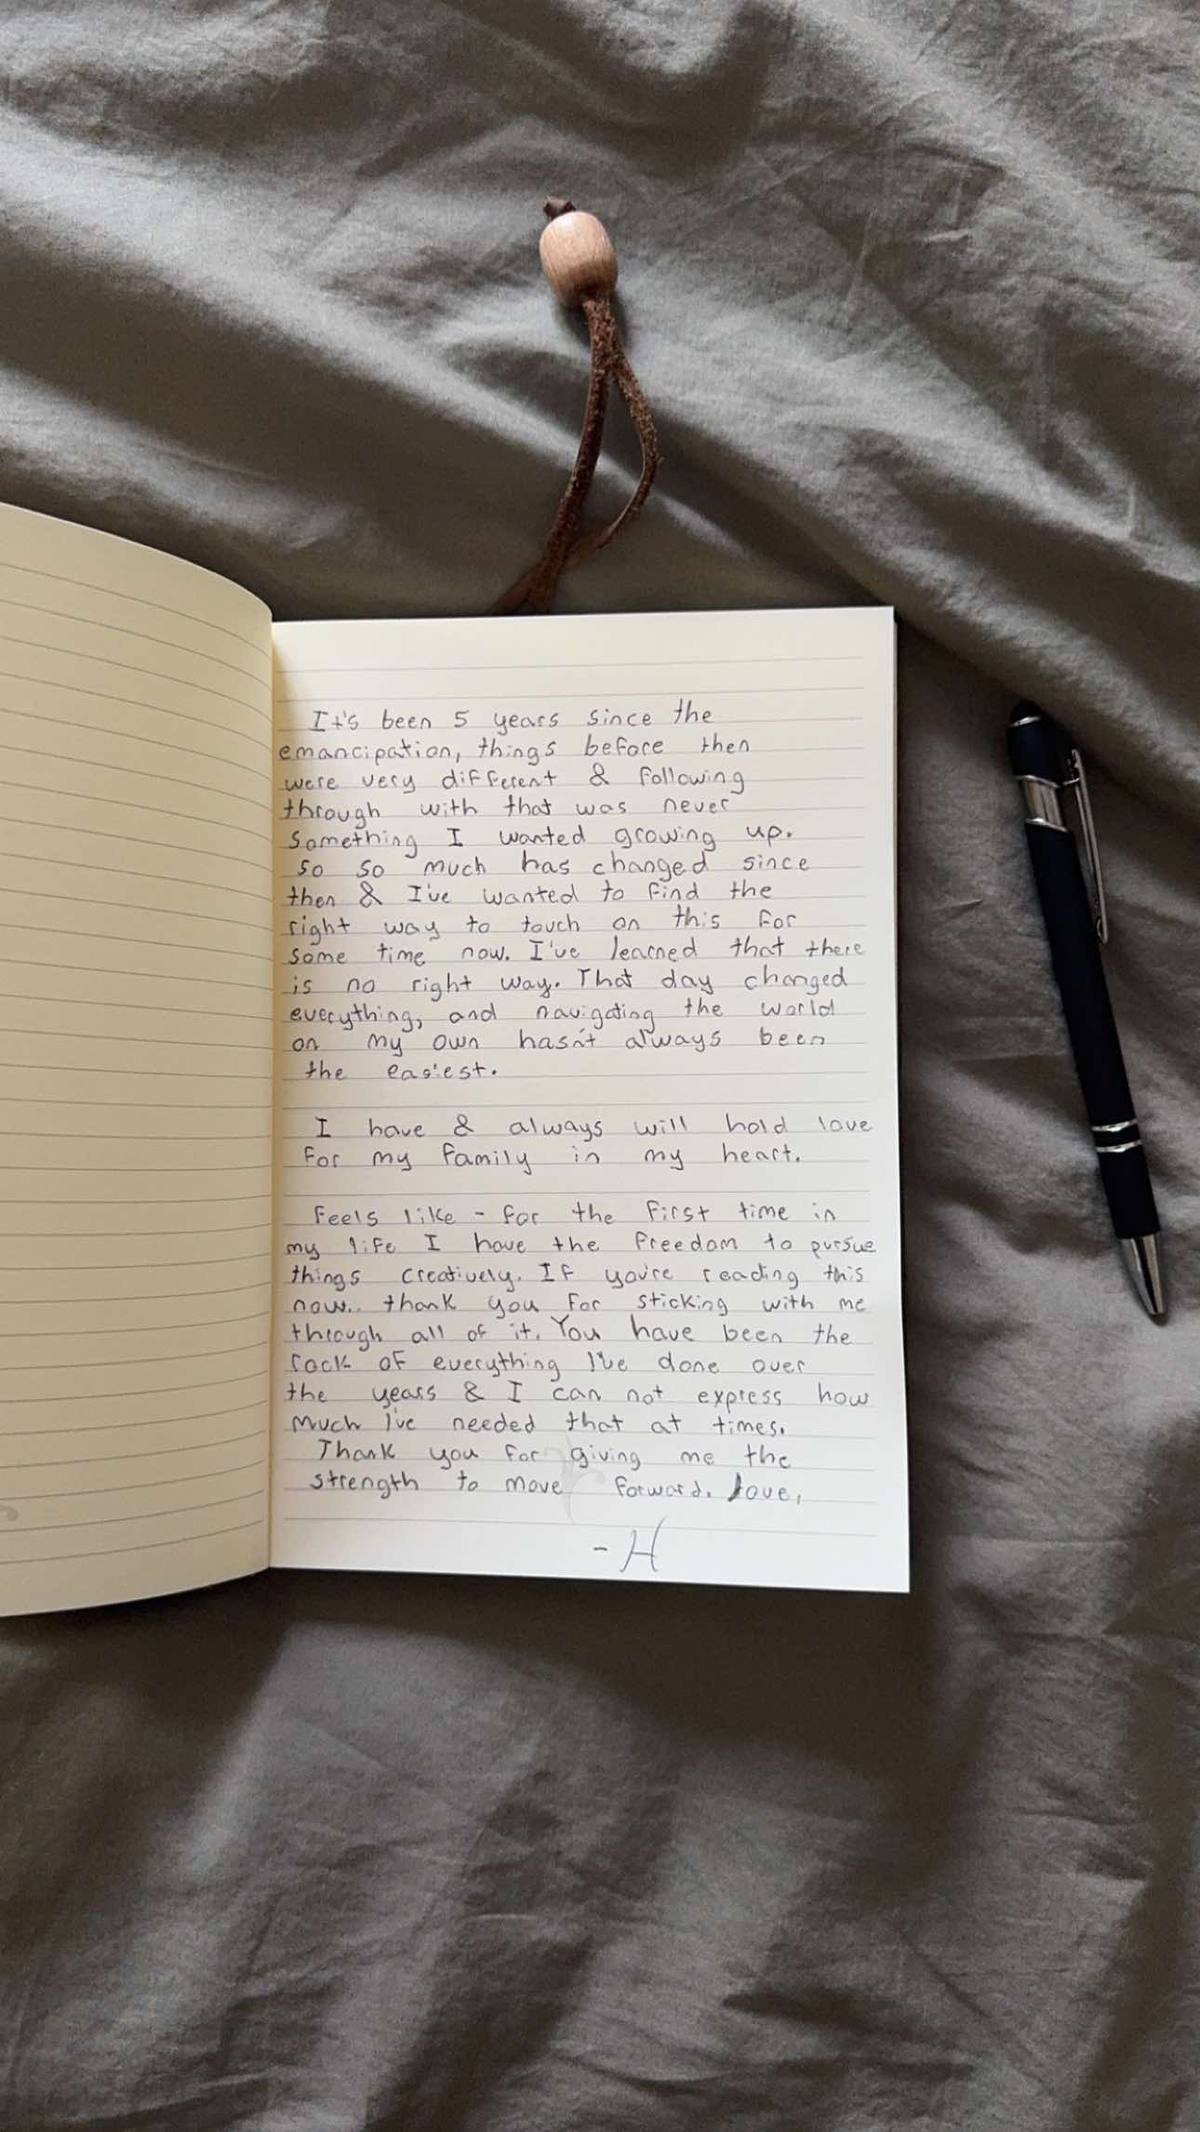 It's been 5 years since the
emancipation, things before then
were very different & following
through with that was never
something I wanted growing up.
so so much has changed since
then & I've wanted to find the
right way to touch on this for
some time now. I've learned that there
is no right way. That day changed
everything, and navigating the world
on my own hasn't always been
the easiest.
I have & always will hold love
for my family in my heart.
Feels like - for the first time in
my life I have the freedom to pursue
things creatively. If you're reading this
now.. thank you for sticking with me
through all of it. You have been the
rock of everything I've done over
the years & I can not express how
much I've needed that at times.
Thank you for giving me the
strength to move forward. Love,
- H